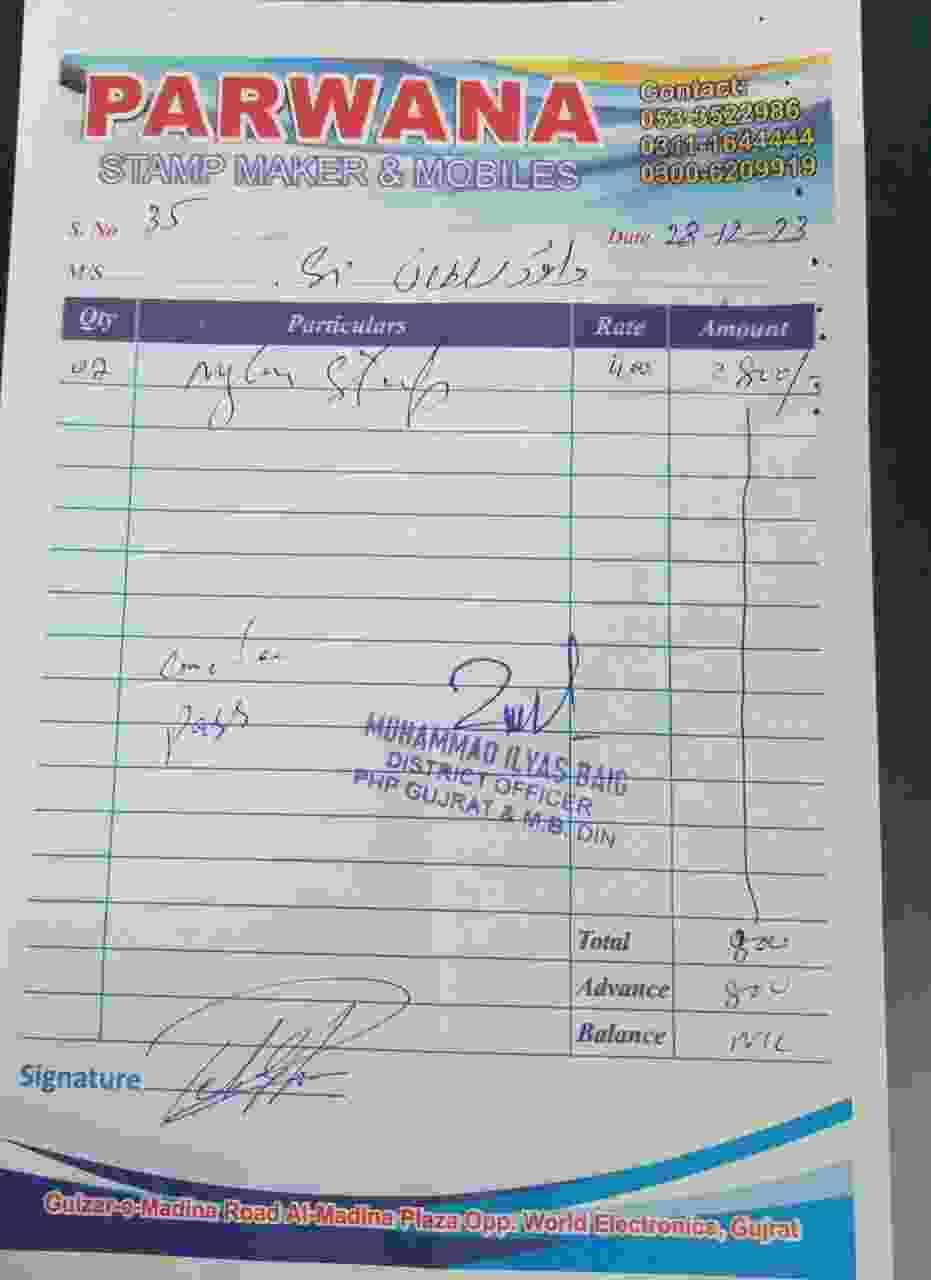 PARWANA
STAMP MAKER & MOBILES
Contact:
053-3522986
0311-1644444
0300-6209919
S. No 35
Date 28-12-23
M/S
Qty Particulars Rate Amount
02 Nylon Stamp 800/-
pass
MUHAMMAD ILYAS BAIG
DISTRICT OFFICER
PHP GUJRAT & M.B. DIN
Total 800
Advance 800
Balance NIL
Signature
Gulzar-e-Madina Road Al-Madina Plaza Opp. World Electronics, Gujrat